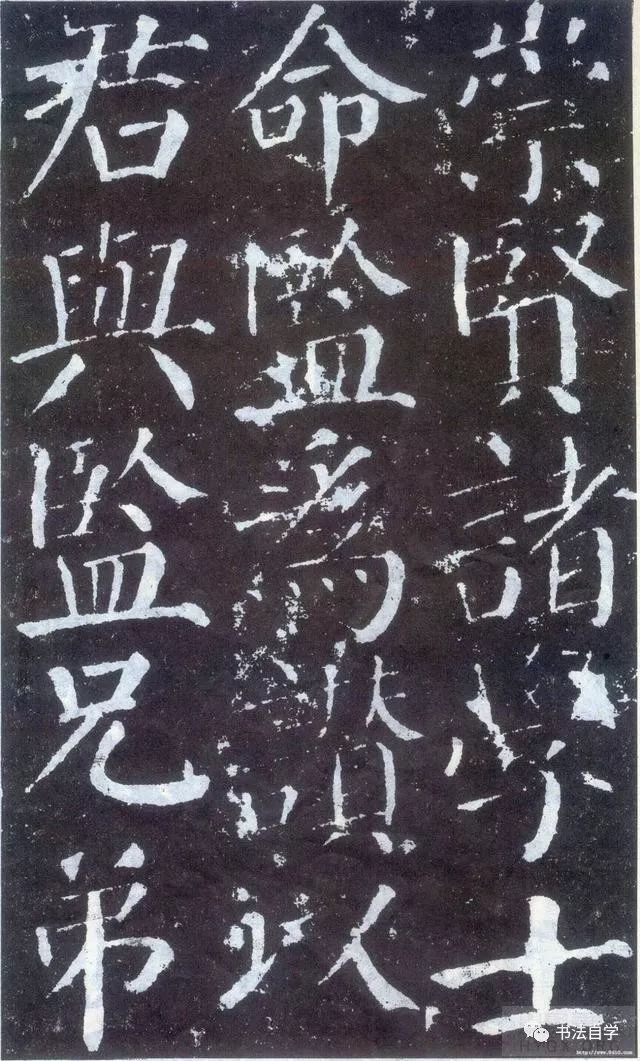 崇賢諸學士
命監為讃以
君與監兄弟
书法自学